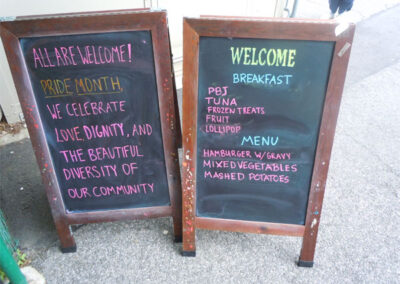 ALL ARE WELCOME!
PRIDE MONTH,
WE CELEBRATE
LOVE, DIGNITY, AND
THE BEAUTIFUL
DIVERSITY OF
OUR COMMUNITY
WELCOME
BREAKFAST
PBJ
TUNA
FROZEN TREATS
FRUIT
LOLLIPOP
MENU
HAMBURGER W/GRAVY
MIXED VEGETABLES
MASHED POTATOES